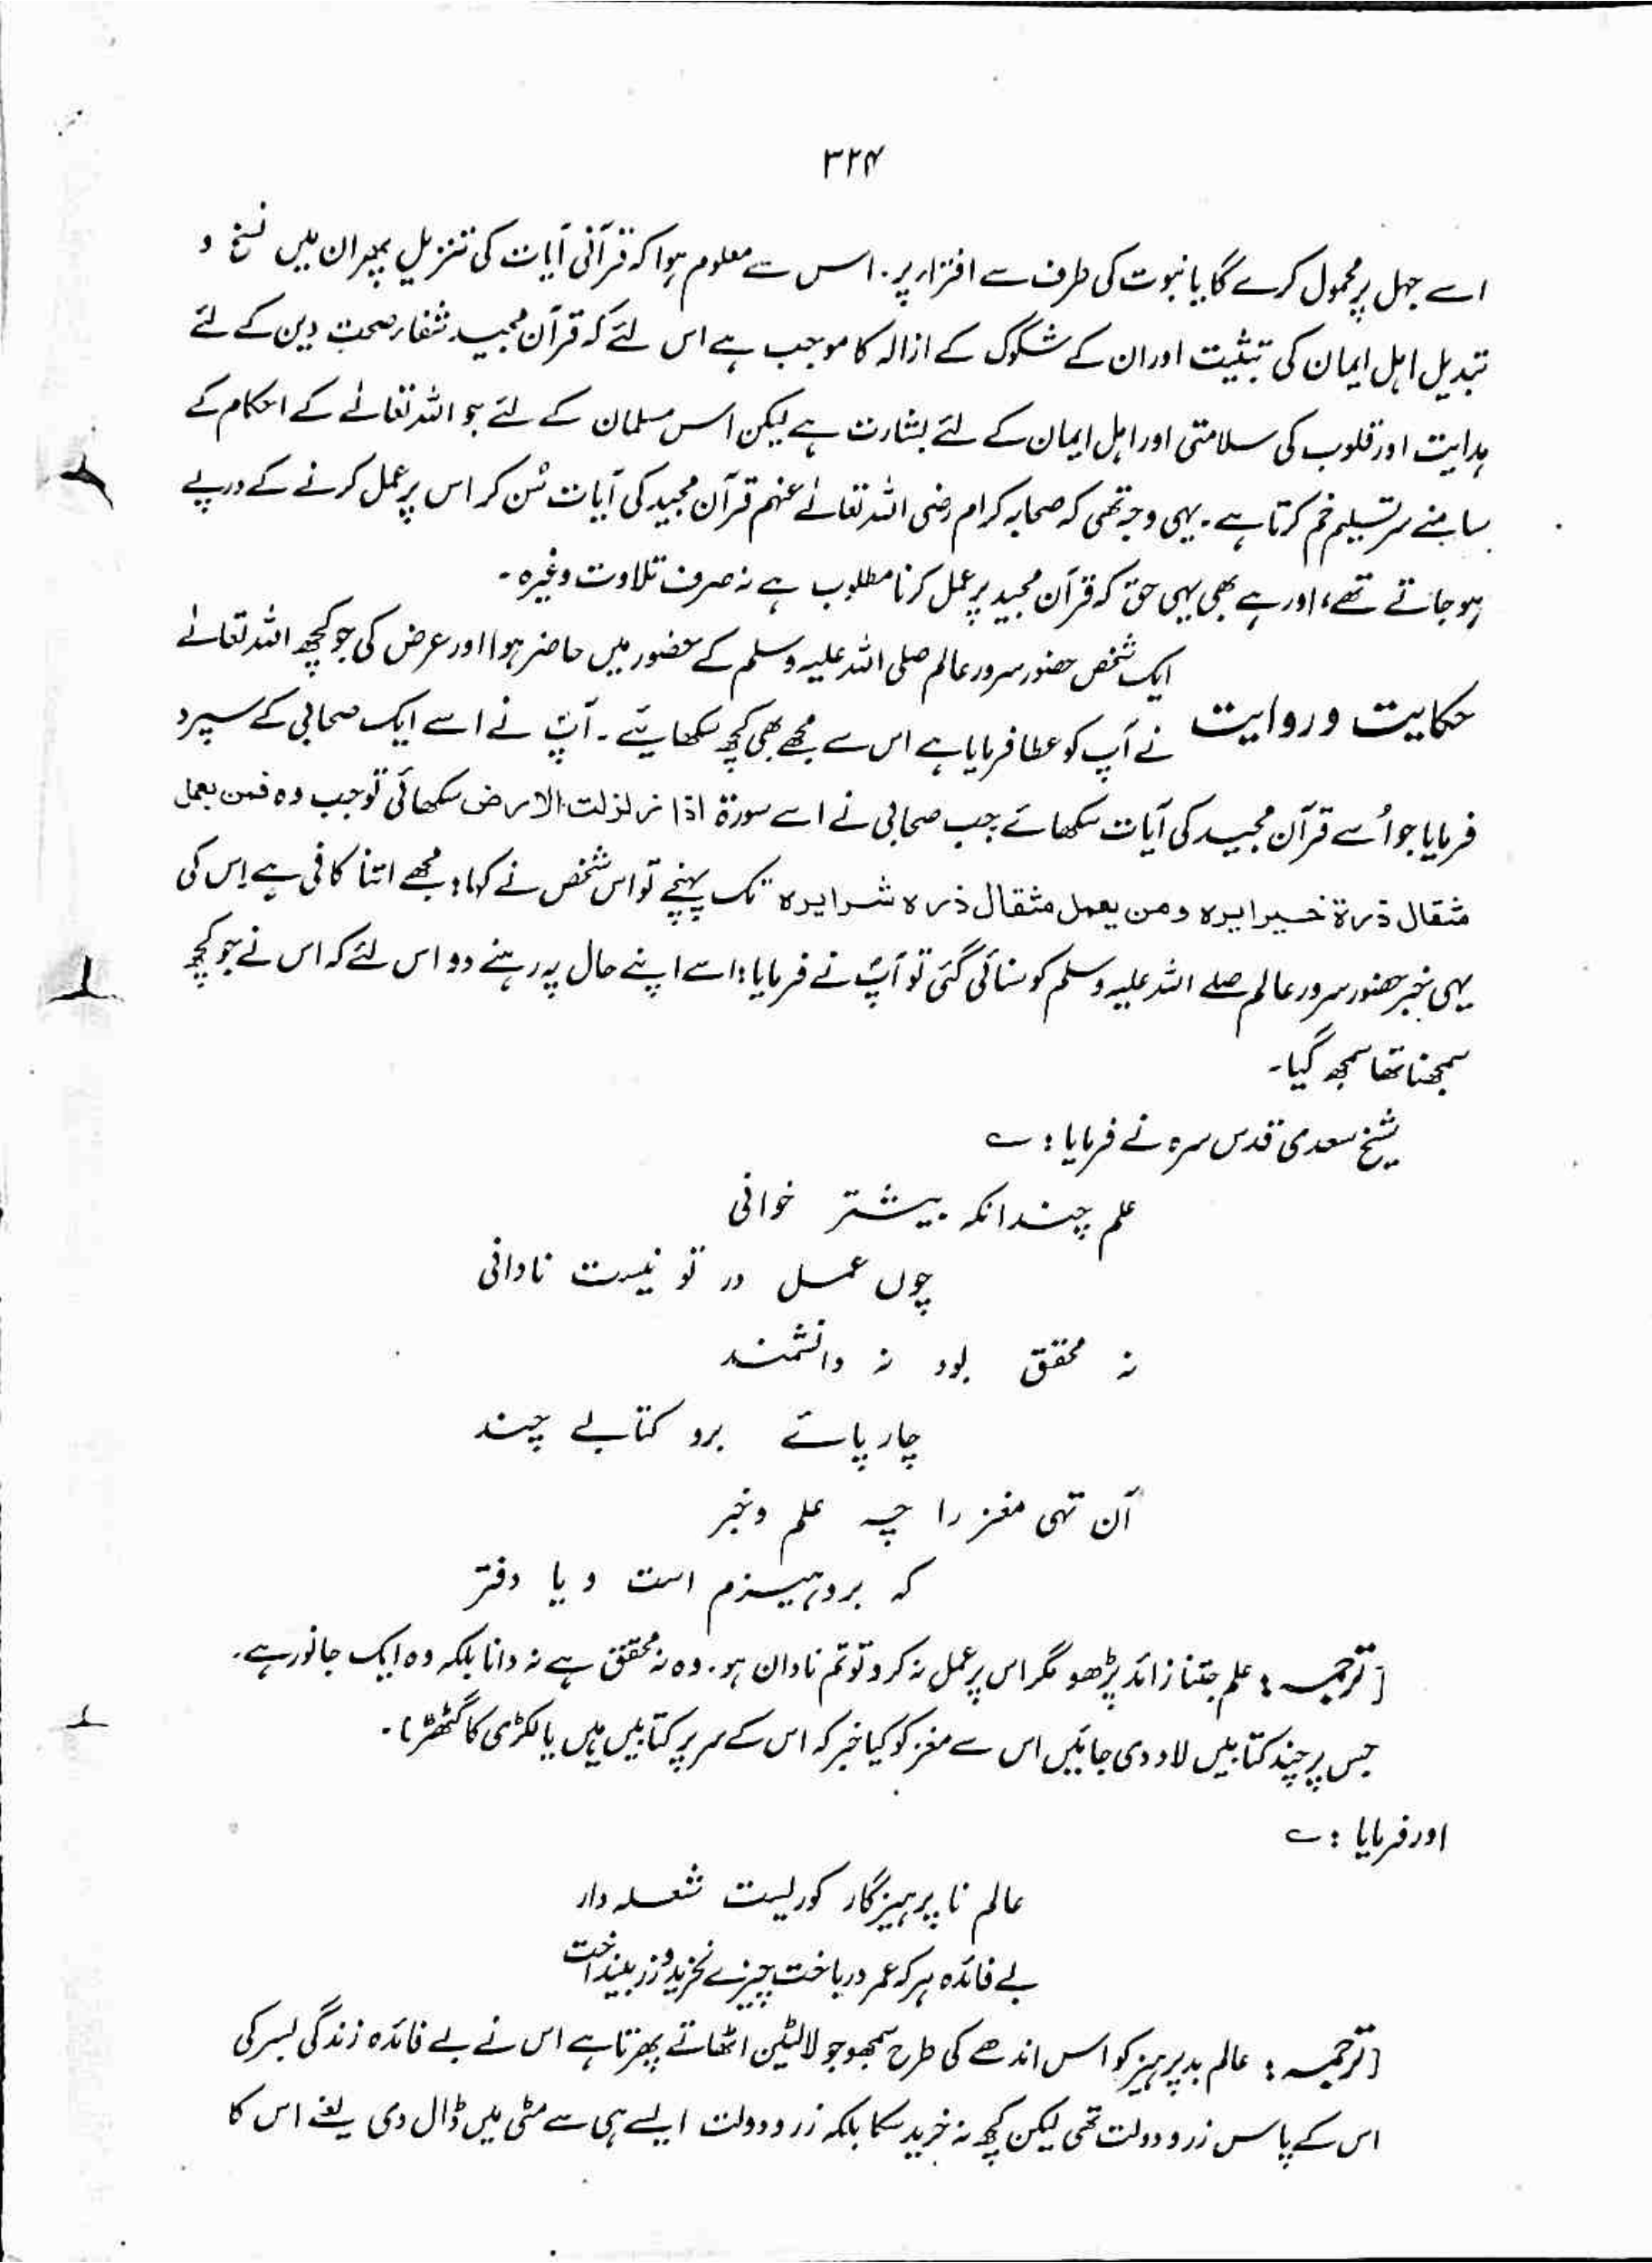 ۳۲۴
اسے جہل پر محمول کرے گا یا نبوت کی طرف سے افتراء پر۔ اس سے معلوم ہوا کہ قرآنی آیات کی تنزیل پھر ان میں نسخ و
تبدیل اہل ایمان کی تثبیت اور ان کے شکوک کے ازالہ کا موجب ہے اس لئے کہ قرآن مجید شفاء صحتِ دین کے لئے
ہدایت اور قلوب کی سلامتی اور اہل ایمان کے لئے بشارت ہے لیکن اس مسلمان کے لئے جو اللہ تعالےٰ کے احکام کے
سامنے سرتسلیم خم کرتا ہے۔ یہی وجہ تھی کہ صحابہ کرام رضی اللہ تعالےٰ عنہم قرآن مجید کی آیات سُن کر اس پر عمل کرنے کے درپے
ہو جاتے تھے، اور ہے بھی یہی حق کہ قرآن مجید پر عمل کرنا مطلوب ہے نہ صرف تلاوت وغیرہ۔
ایک شخص حضور سرور عالم صلی اللہ علیہ وسلم کے حضور میں حاضر ہوا اور عرض کی جو کچھ اللہ تعالےٰ
حکایت و روایت نے آپ کو عطا فرمایا ہے اس سے مجھے بھی کچھ سکھایئے۔ آپؐ نے اسے ایک صحابی کے سپرد
فرمایا جو اُسے قرآن مجید کی آیات سکھائے جب صحابی نے اسے سورۃ اذا زلزلت الارض سکھائی تو جب وہ فمن یعمل
مثقال ذرۃ خیرا یرہ ومن یعمل مثقال ذرہ شرا یرہ" تک پہنچے تو اس شخص نے کہا: مجھے اتنا کافی ہے اِس کی
یہی خبر حضور سرور عالم صلے اللہ علیہ وسلم کو سنائی گئی تو آپؐ نے فرمایا: اسے اپنے حال پہ رہنے دو اس لئے کہ اس نے جو کچھ
سمجھنا تھا سمجھ گیا۔
شیخ سعدی قدس سرہ نے فرمایا : ؎
علم چندانکہ بیشتر خوانی
چوں عمل در تو نیست نادانی
نہ محقق بود نہ دانشمند
چار پائے برو کتابے چند
آن تہی مغز را چہ علم و خبر
کہ برو ہیزم است و یا دفتر
[ترجمہ : علم جتنا زائد پڑھو مگر اس پر عمل نہ کرو تو تم نادان ہو۔ وہ نہ محقق ہے نہ دانا بلکہ وہ ایک جانور ہے۔
جس پر چند کتابیں لاد دی جائیں اس سے مغز کو کیا خبر کہ اس کے سر پر کتابیں ہیں یا لکڑی کا گٹھڑ]۔
اور فرمایا : ؎
عالم نا پرہیزگار کوریست شعلہ دار
بے فائدہ ہر کہ عمر در باخت چیزے نخرید و زر بینداخت
[ترجمہ : عالم بد پرہیز کو اس اندھے کی طرح سمجھو جو لالٹین اٹھائے پھرتا ہے اس نے بے فائدہ زندگی بسر کی
اس کے پاس زر و دولت تھی لیکن کچھ نہ خرید سکا بلکہ زر و دولت ایسے ہی سے مٹی میں ڈال دی یعنے اس کا